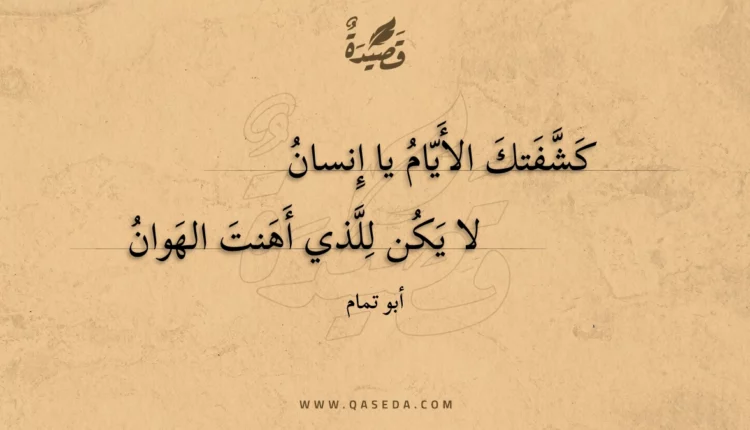 قَصِيدَةٌ
كَشَّفَتكَ الأَيّامُ يا إِنسانُ
لا يَكُن لِلَّذي أَهَنتَ الهَوانُ
أبو تمام
WWW.QASEDA.COM